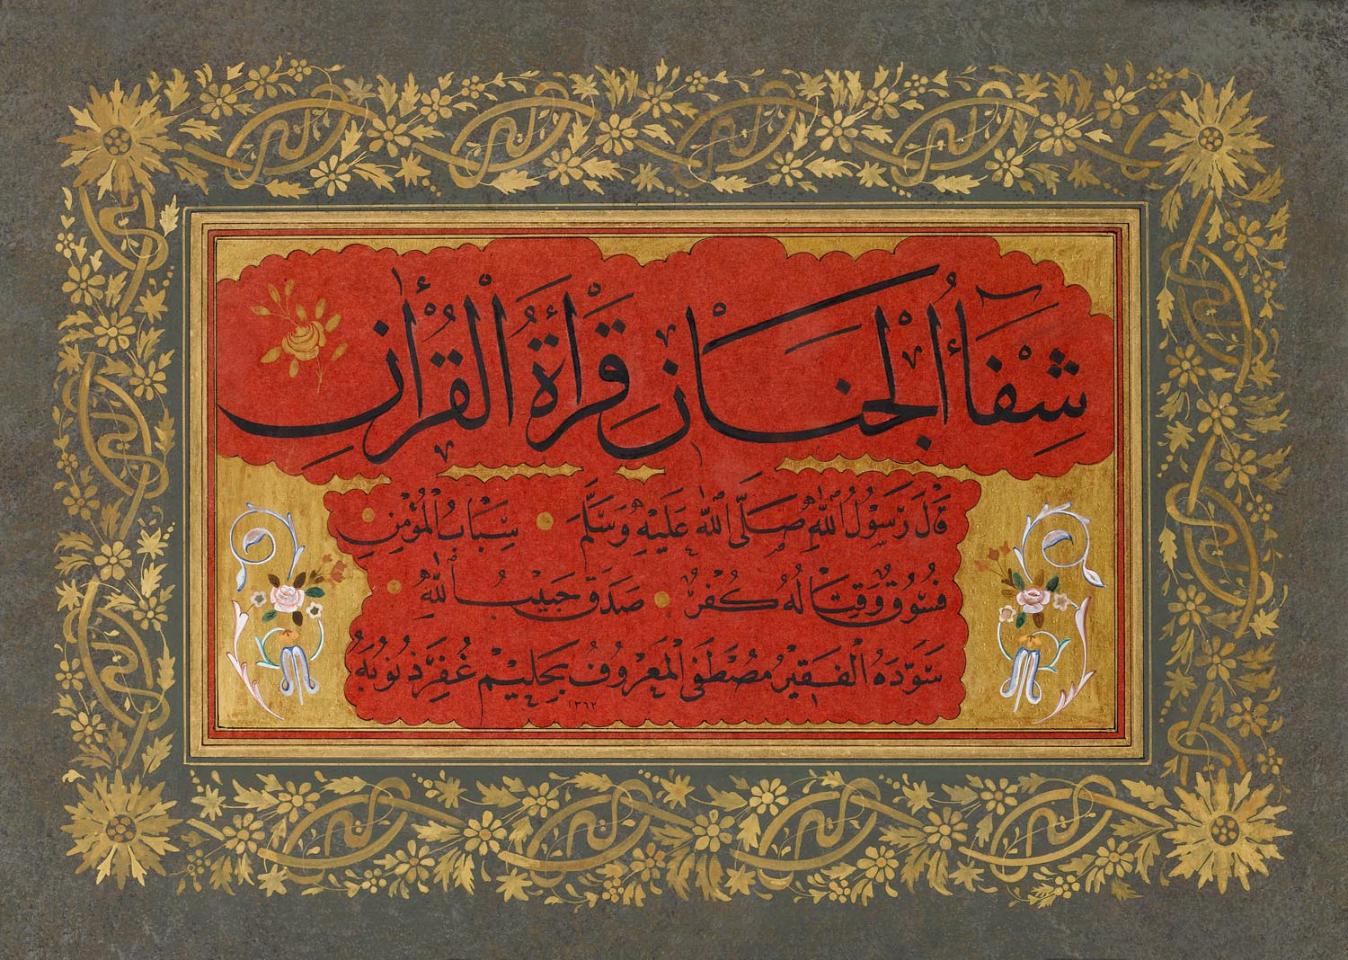 شِفَاۤءُ الْجَنَانِ قِرَاْءَةُ الْقُرْاٰنِ
قَالَ رَسُولُ اللّٰهِ صَلَّى اللّٰهُ عَلَيْهِ وَسَلَّمَ سِبَابُ الْمُؤْمِنِ
فُسُوقٌ وَقِتَالُهُ كُفْرٌ صَدَقَ حَبِيبُ اللّٰهِ
سَوَّدَهُ الْفَقِيرُ مُصْطَفَى الْمَعْرُوفُ بِحَلِيمْ غُفِرَ ذُنُوبُهُ
١٣٦٢